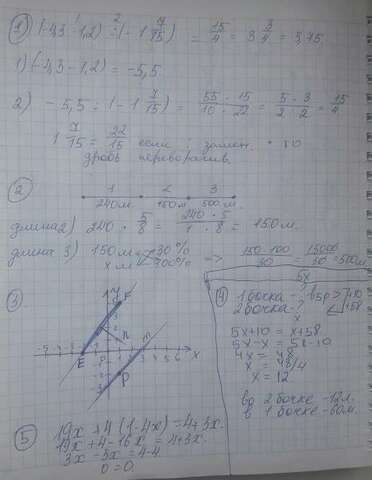 1) (-4,3 - 1,2) : (-1 7/15) = 15/4 = 3 3/4 = 3,75
1) (-4,3 - 1,2) = -5,5
2) - 5,5 : (-1 7/15) = 55 · 15 / 10 · 22 = 5 · 3 / 2 · 2 = 15/4
1 7/15 = 22/15 если : замен. · то
дробь переворачив.
2
1 2 3
240м 150м 500м.
длина 2) 240 · 5/8 = 240 · 5 / 1 · 8 = 150м.
длина 3) 150м 30%
x м 100% => 150 · 100 / 30 = 15000 / 30 = 500м
3.
y F
n m
-5 -4 -3 1 2 3 4 5 6 x
E
P
4 1 бочка - 5x +10
2 бочка - x +58
5x+10 = x+58
5x-x = 58-10
4x = 48
x = 48/4
x = 12
во 2 бочке - 12л.
в 1 бочке - 60л.
5 19x + 4(1-4x) = 4+3x.
19x + 4 - 16x = 4+3x.
3x - 3x = 4-4
0 = 0.